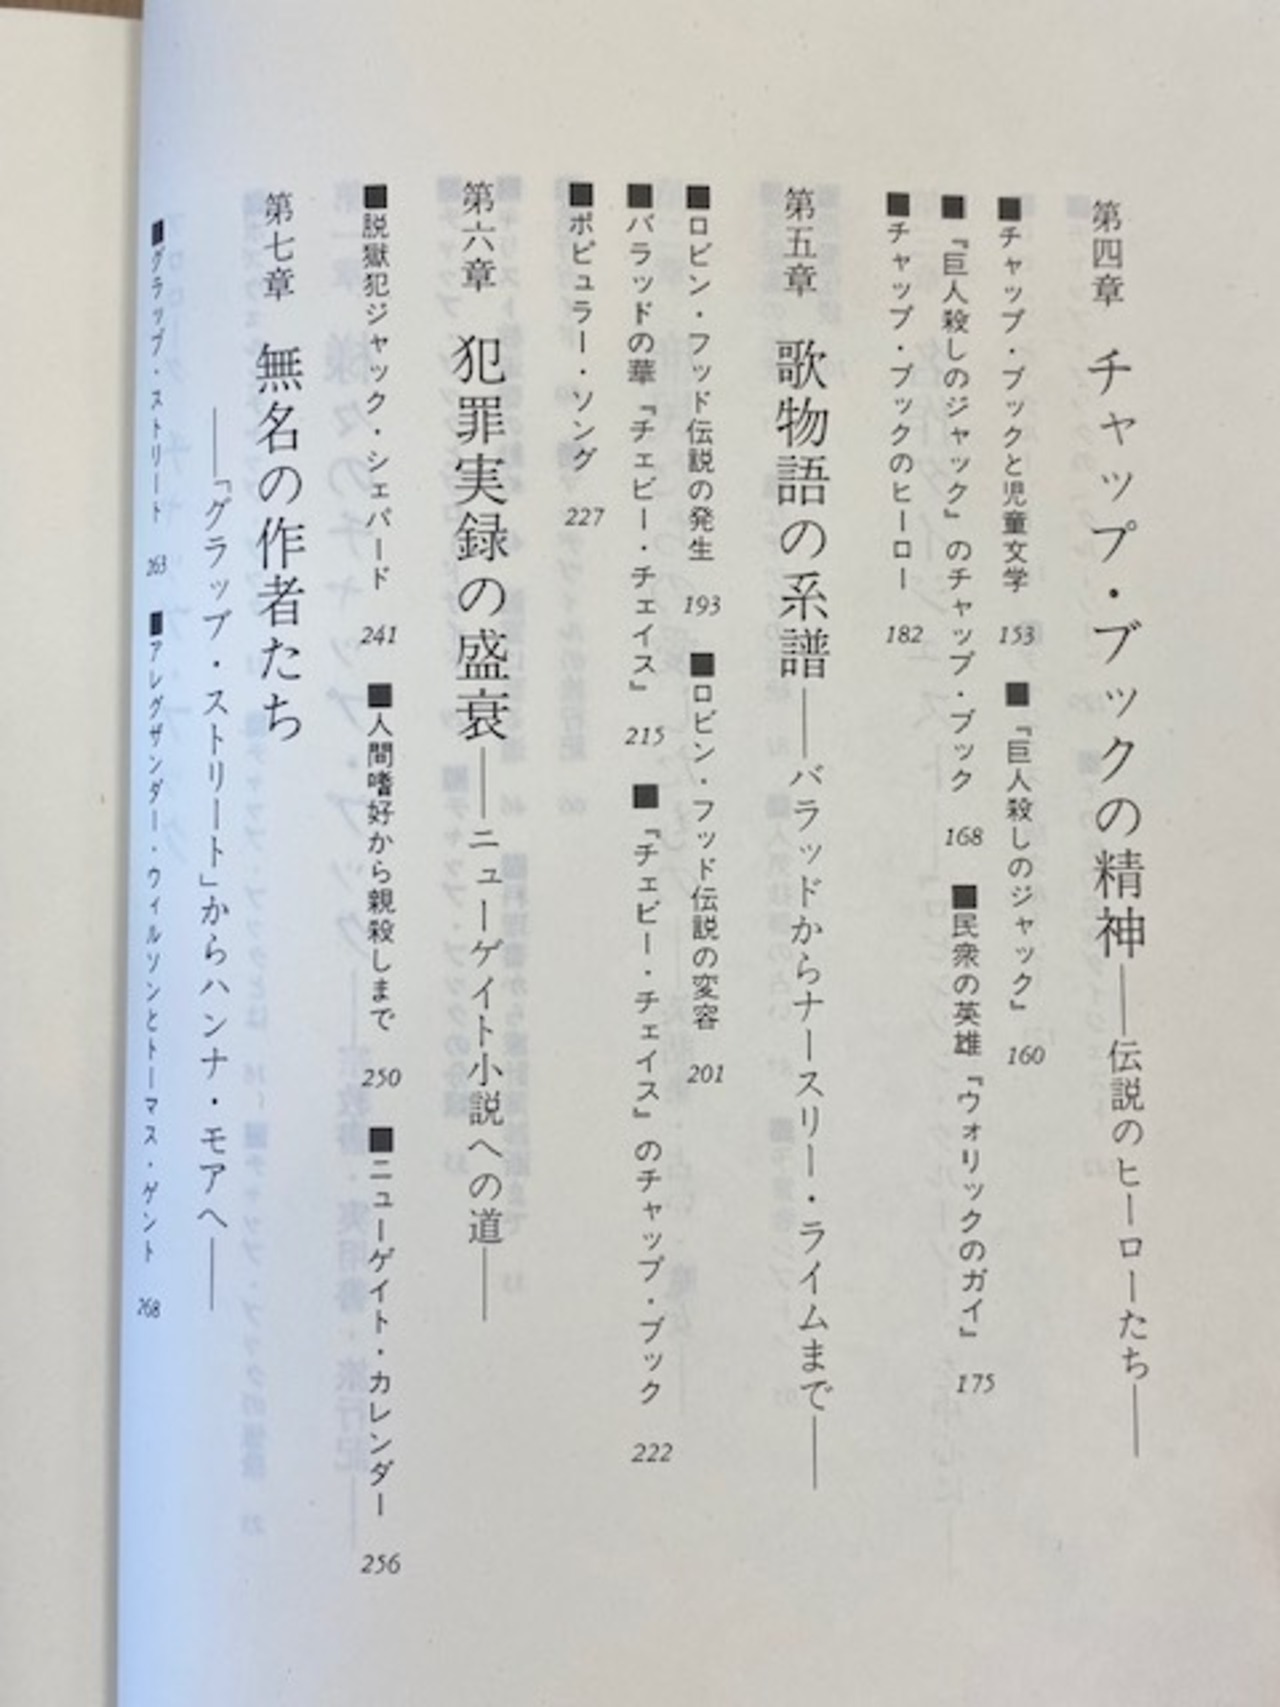 第四章　チャップ・ブックの精神――伝説のヒーローたち――
■チャップ・ブックと児童文学　153　■『巨人殺しのジャック』　160
■『巨人殺しのジャック』のチャップ・ブック　168　■民衆の英雄『ウォリックのガイ』　175
■チャップ・ブックのヒーロー　182
第五章　歌物語の系譜――バラッドからナースリー・ライムまで――
■ロビン・フッド伝説の発生　193　■ロビン・フッド伝説の変容　201
■バラッドの華『チェビー・チェイス』　215　■『チェビー・チェイス』のチャップ・ブック　222
■ポピュラー・ソング　227
第六章　犯罪実録の盛衰――ニューゲイト小説への道――
■脱獄犯ジャック・シェパード　241　■人間嗜好から親殺しまで　250　■ニューゲイト・カレンダー　256
第七章　無名の作者たち
――「グラッブ・ストリート」からハンナ・モアへ――
■グラッブ・ストリート　263　■アレグザンダー・ウィルソンとトーマス・ゲント　268